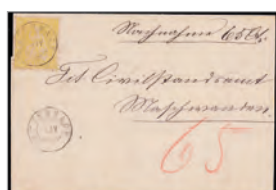 Nachnahme 65 Ct.
Tit Civilstandsamt
Maschwanden.
65